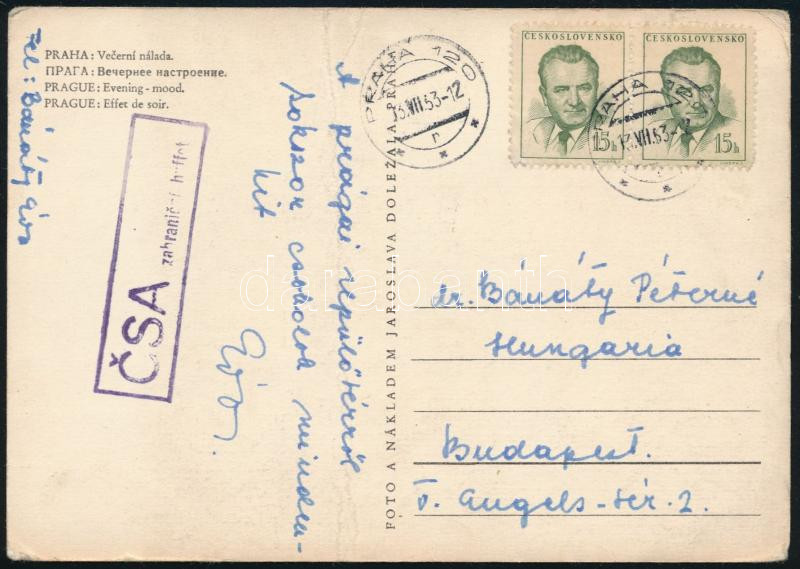 PRAHA: Večerní nálada.
ПРАГА: Вечернее настроение.
PRAGUE: Evening - mood.
PRAGUE: Effet de soir.
Fel: Bánáty Éva
ČSA
zahraniční buffet
A prágai repülőtérről
sokszor csókolok minden-
kit
Éva.
FOTO A NÁKLADEM JAROSLAVA DOLEŽALA, PRAHA
PRAHA 120
13.VII.53-12
r
ČESKOSLOVENSKO
15h
ČESKOSLOVENSKO
15h
PRAHA 120
13.VII.53-12
dr. Bánáty Péterné
Hungaria
Budapest.
V. Engels-tér. 2.
darabanth